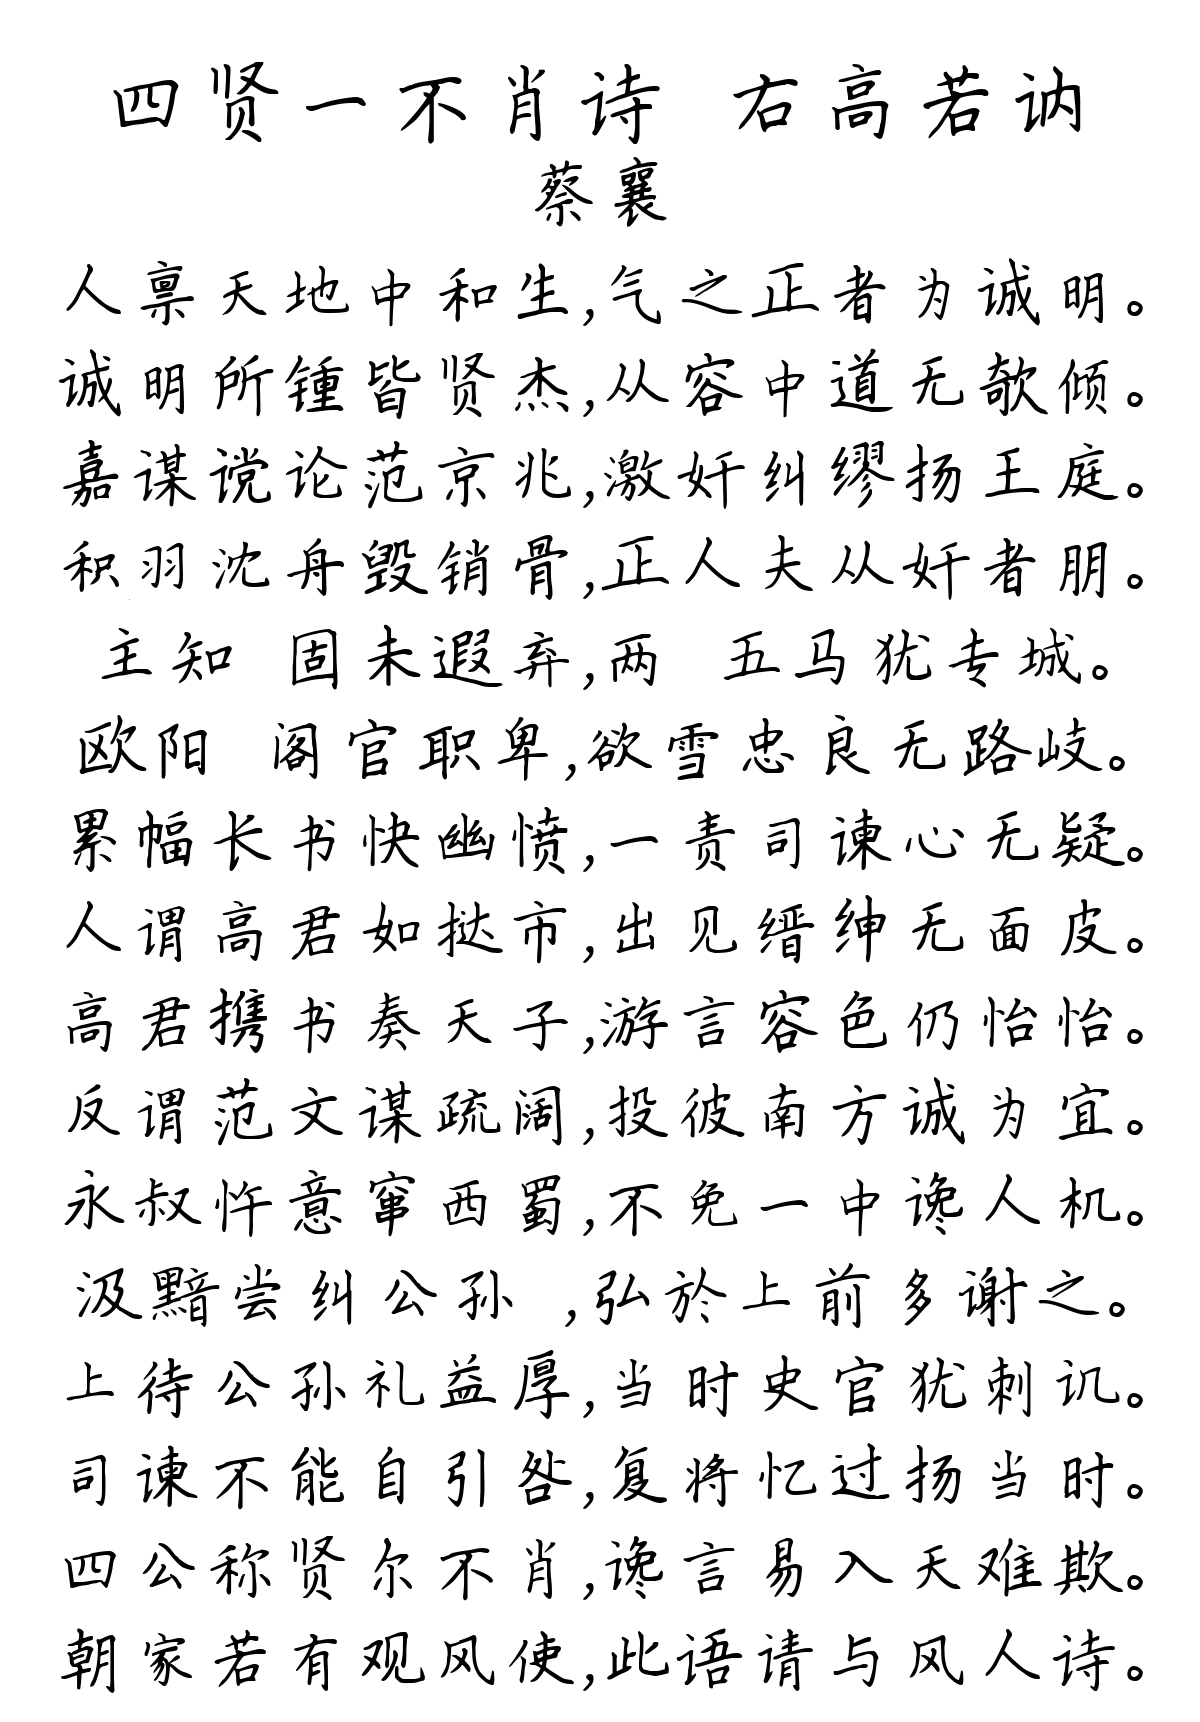 四贤一不肖诗 右高若讷
蔡襄
人禀天地中和生,气之正者为诚明。
诚明所锺皆贤杰,从容中道无欹倾。
嘉谋谠论范京兆,激奸纠缪扬王庭。
积羽沈舟毁销骨,正人夫从奸者朋。
主知 固未遐弃,两 五马犹专城。
欧阳 阁官职卑,欲雪忠良无路岐。
累幅长书快幽愤,一责司谏心无疑。
人谓高君如挞市,出见缙绅无面皮。
高君携书奏天子,游言容色仍怡怡。
反谓范文谋疏阔,投彼南方诚为宜。
永叔忤意窜西蜀,不免一中谗人机。
汲黯尝纠公孙 ,弘於上前多谢之。
上待公孙礼益厚,当时史官犹刺讥。
司谏不能自引咎,复将忆过扬当时。
四公称贤尔不肖,谗言易入天难欺。
朝家若有观风使,此语请与风人诗。